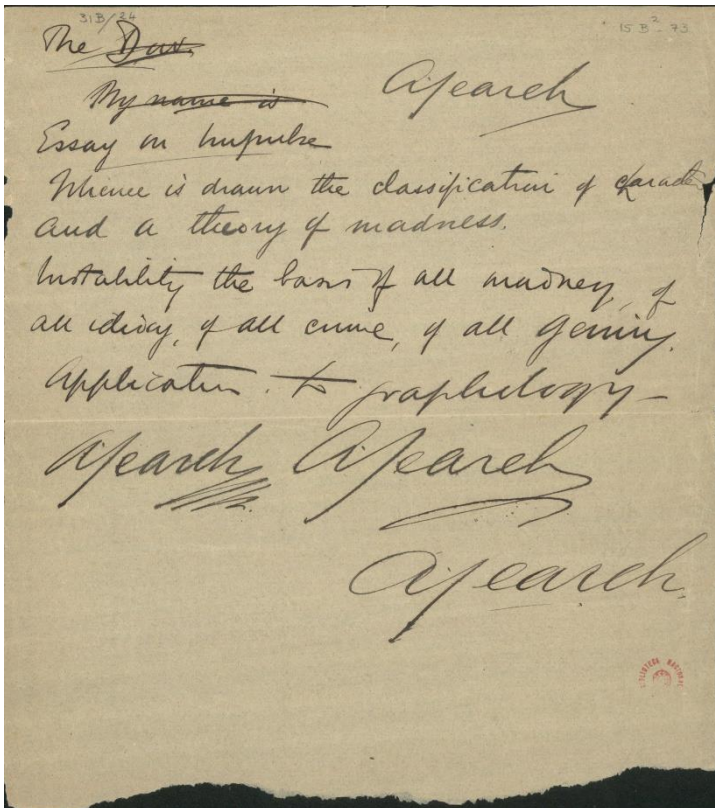 31B/24
15 B² - 73
The Dav.
My name is
ASearch
Essay on Impulse
Whence is drawn the classification of character
and a theory of madness.
Instability the basis of all madness, of
all idiocy, of all crime, of all Genius.
Application to graphology —
ASearch ASearch
ASearch.
BIBLIOTECA NACIONAL